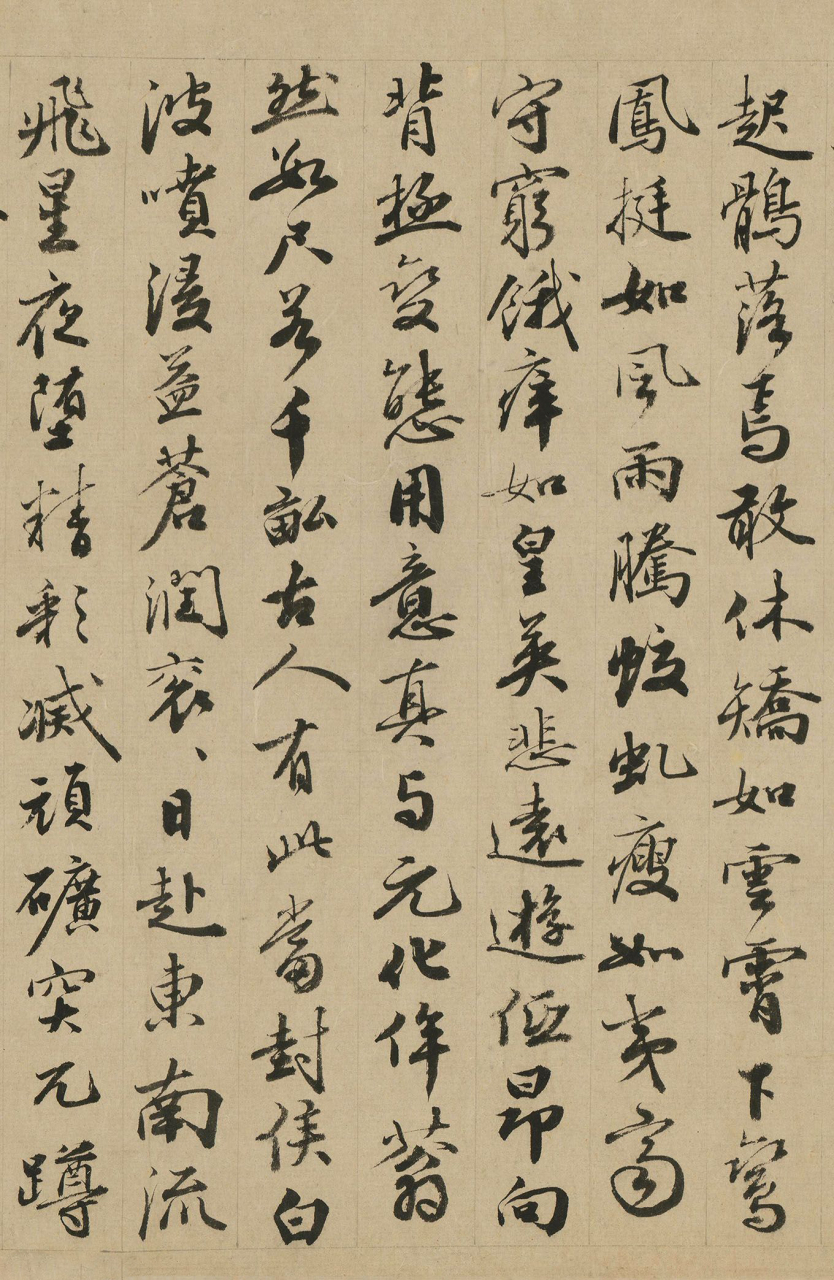 起鶻落焉敢休矯如雲霄下鸞
鳳挺如風雨騰蛟虬瘦如夷齊
守窮餓瘁如皇英悲遠遊低昂向
背極變態用意真与元化侔蓊
然數尺若千畝古人有此當封侯白
波噴浸益蒼潤衮、日赴東南流
飛星夜堕精彩滅頑礦突兀蹲